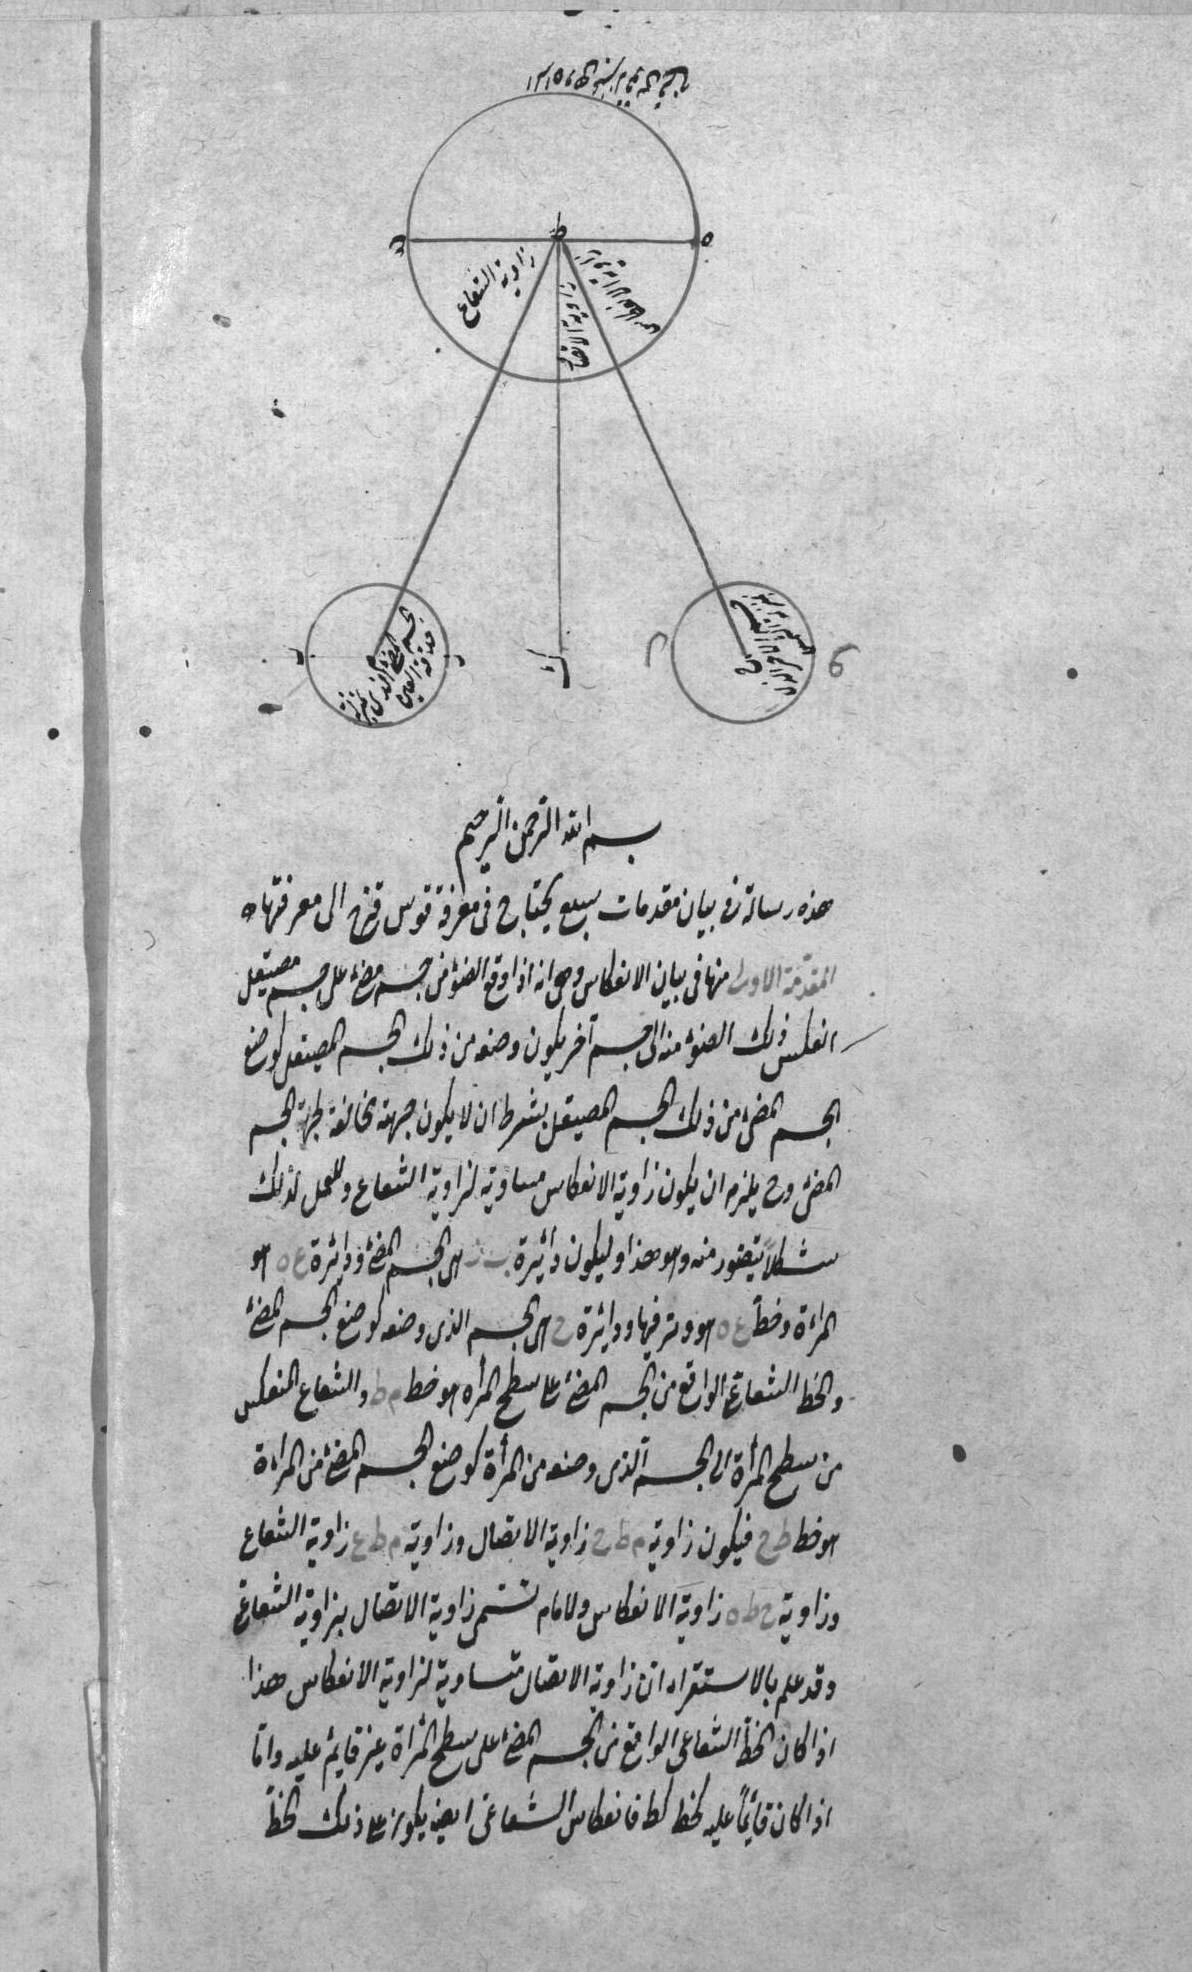 ط
ه
زاوية الشعاع
ك
ح
بسم الله الرحمن الرحيم
هذه رسالة فى بيان مقدمات سبع يحتاج فى معرفة قوس قزح الى معرفتها
المقدمة الاولى منها فى بيان الانعكاس وهى انه اذا وقع الضوء من جسم مضئ على جسم صيقل
انعكس ذلك الضوء منه الى جسم آخر يكون وضعه من ذلك الجسم الصيقل كوضع
الجسم المضئ من ذلك الجسم الصيقل بشرط ان لا يكون جهته مخالفة لجهة الجسم
المضئ وح يلزم ان يكون زاوية الانعكاس مساوية لزاوية الشعاع ولنعمل لذلك
شكلاً يتصور منه وهو هذا وليكون دائرة ب ز هى الجسم المضئ ودائرة ع ه هو
المراءة وخط ع ه هو وتر فيها ودائرة ح هى الجسم الذى وضعه كوضع الجسم المضئ
والخط الشعاعى الواقع من الجسم المضئ على سطح المرأة هو خط م ط والشعاع المنعكس
من سطح المرأة الى الجسم الذى وضعه من المرأة كوضع الجسم المضئ من المرأة
هو خط ط ح فيكون زاوية م ط ح زاوية الاتصال وزاوية م ط ع زاوية الشعاع
وزاوية ح ط ه زاوية الانعكاس والامام تسمى زاوية الاتصال بزاوية الشعاعى
وقد علم بالاستقراء ان زاوية الاتصال متساوية لزاوية الانعكاس هذا
اذا كان الخط الشعاعى الواقع من الجسم المضئ على سطح المرأة غير قايم عليه واما
اذا كان قائماً عليه كخط كط فانعكاس الشعاعى ايضا يكون على ذلك الخط